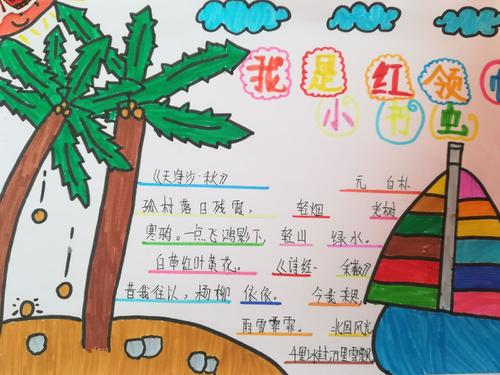 我是红领巾
小书虫
《天净沙·秋》 元 白朴
孤村落日残霞， 轻烟 老树
寒鸦。一点飞鸿影下， 轻山 绿水。
白草红叶黄花。 《诗经· 采薇》
昔我往以，杨柳 依依。 今我来思，
雨雪霏霏。 北国风光
千里冰封，万里雪飘